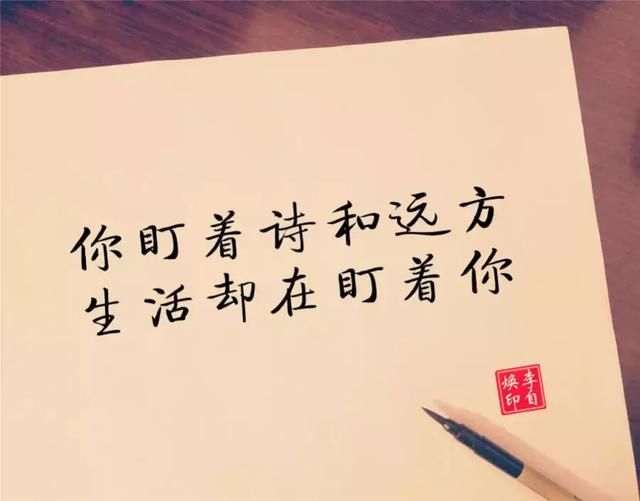 你盯着诗和远方
生活却在盯着你
李自
焕印